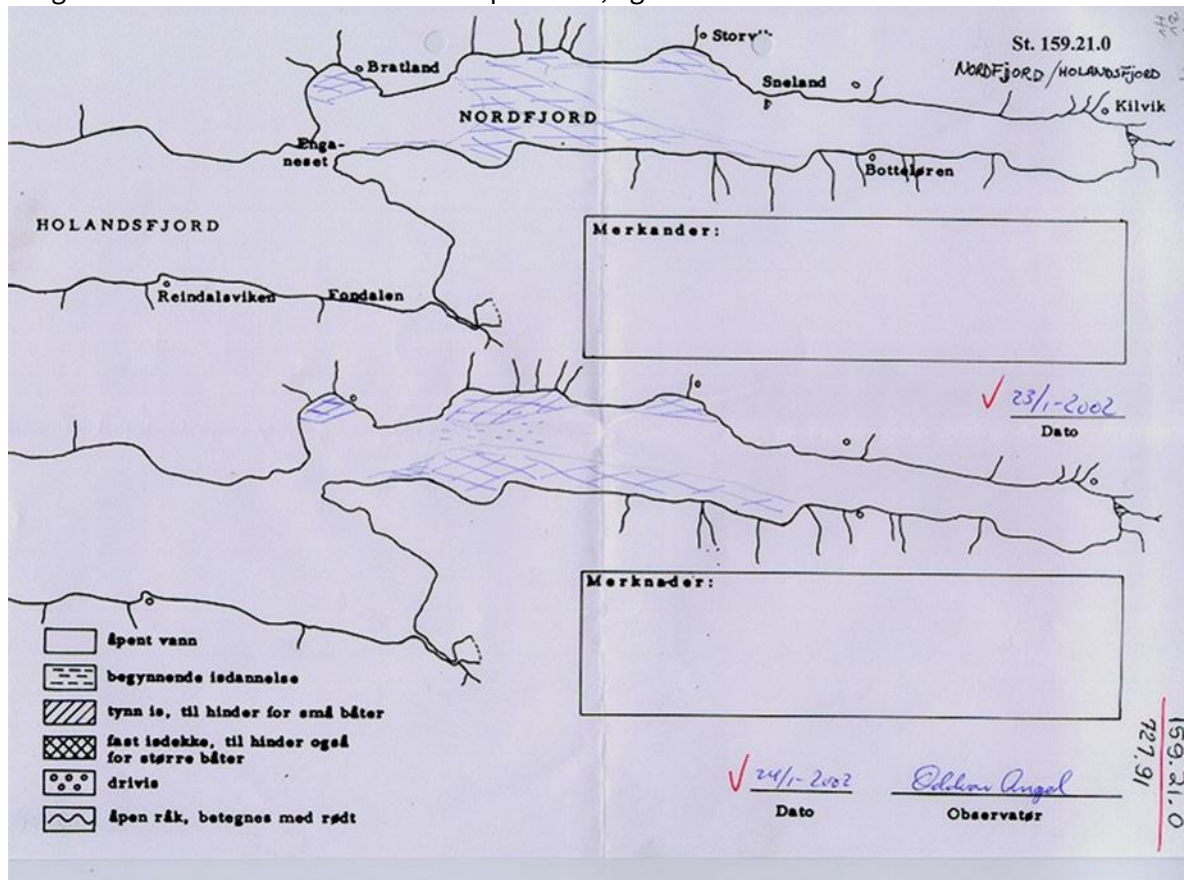 St. 159.21.0
NORDFJORD/HOLANDSFJORD
Storvik
Bratland
Sneland
Kilvik
NORDFJORD
Enga-
neset
Botteløren
HOLANDSFJORD
Merkander:
Reindalsviken
Fondalen
23/1-2002
Dato
Merknader:
åpent vann
begynnende isdannelse
tynn is, til hinder for små båter
fast isdekke, til hinder også
for større båter
drivis
åpen råk, betegnes med rødt
24/1-2002
Oddvar Angel
Dato
Observatør
159.21.0
727.91